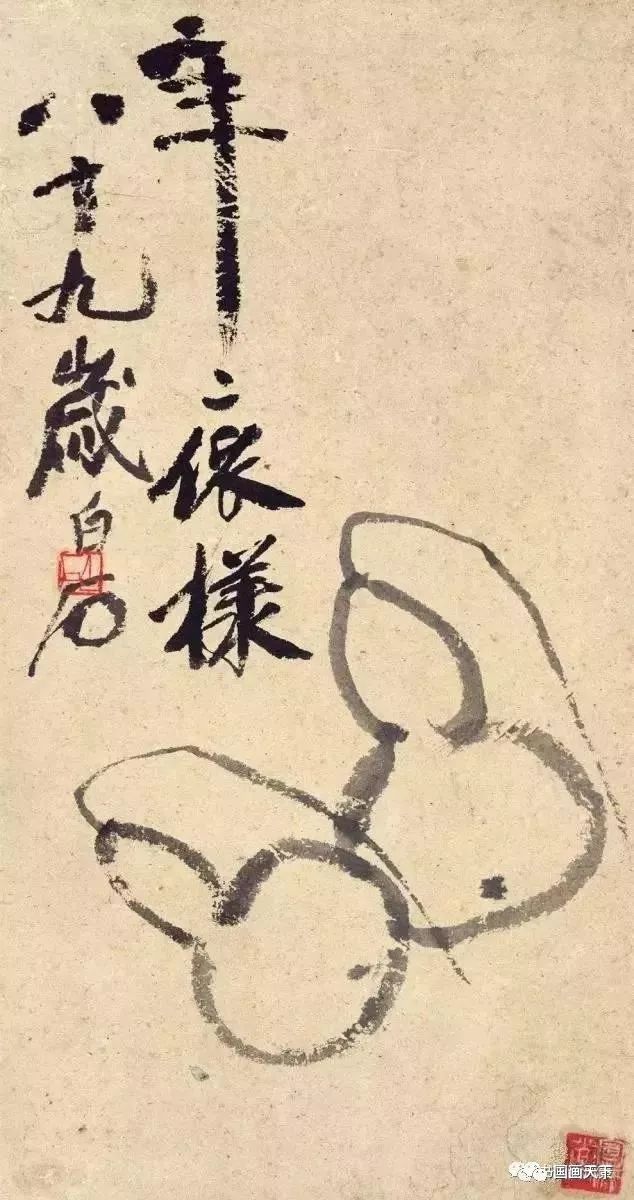 年〻依樣
八十九歲白石
国画天下